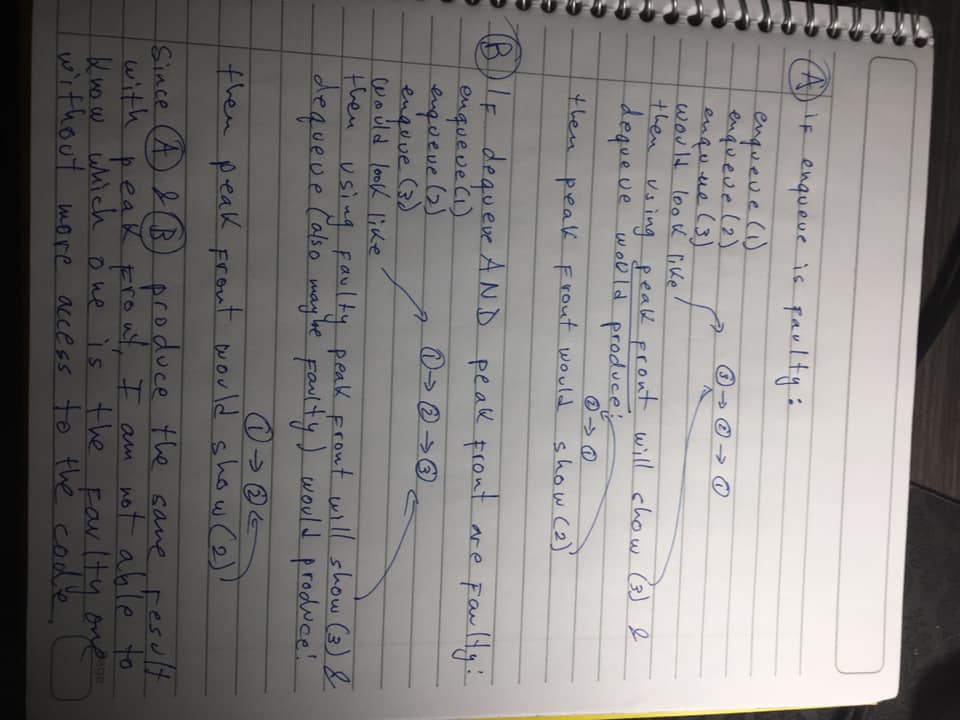 Ⓐ if enqueue is faulty:
enqueue (1)
enqueue (2)
enqueue (3)
would look like
③→②→①
then using peak front will show (3) &
dequeue would produce:
②→①
then peak front would show (2)
Ⓑ IF dequeue AND peak front are faulty:
enqueue (1)
enqueue (2)
enqueue (3)
would look like
①→②→③
then using faulty peak front will show (3) &
dequeue (also maybe faulty) would produce:
①→②
then peak front would show (2)
Since Ⓐ & Ⓑ produce the same result
with peak front, I am not able to
know which one is the faulty one
without more access to the code
page